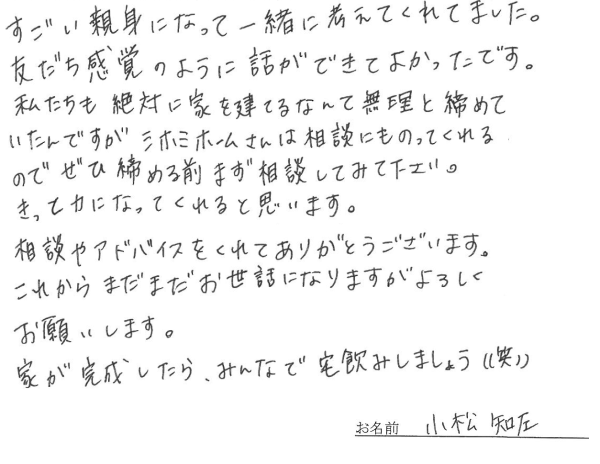 すごい親身になって一緒に考えてくれてました。
友だち感覚のように話ができてよかったです。
私たちも絶対に家を建てるなんて無理と締めて
いたんですがミホミホームさんは相談にものってくれる
のでぜひ締める前まず相談してみて下さい。
きっと力になってくれると思います。
相談やアドバイスをくれてありがとうございます。
これからまだまだお世話になりますがよろしく
お願いします。
家が完成したら、みんなで宅飲みしましょう((笑))
お名前 小松 知左